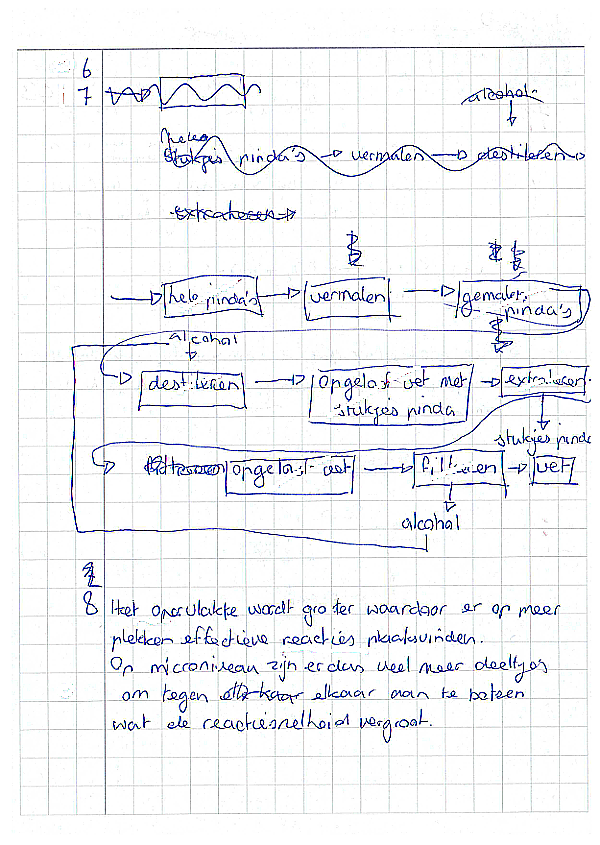 6
7
alcohol
Hele
Stukjes pinda's → vermalen → destileren →
extraheren →
→ hele pinda's → vermalen → gemalen
pinda's
alcohol
→ destileren → opgelost vet met → extraheren
stukjes pinda
stukjes pinda
→ opgelost vet → filtreren → vet
alcohol
8 Het opervlakte wordt groter waardoor er op meer
plekken effectieve reacties plaatsvinden.
Op microniveau zijn er dus veel meer deeltjes
om tegen elkaar aan te botsen
wat de reactiesnelheid vergroot.